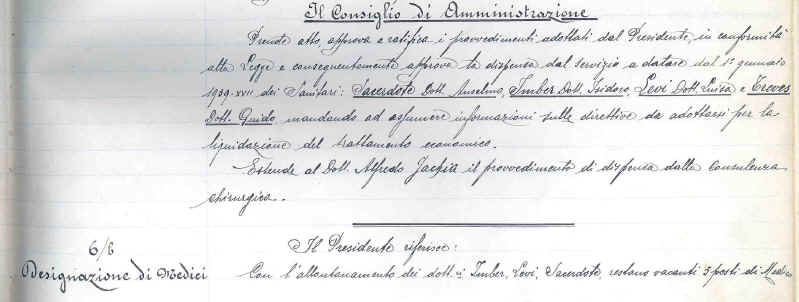 Il Consiglio di Amministrazione
Prende atto, approva e ratifica i provvedimenti adottati dal Presidente, in conformità
alla Legge e conseguentemente approva la dispensa dal servizio a datare dal 1° gennaio
1939-XVII dei Sanitari: Sacerdote Dott. Anselmo, Imber Dott. Isidoro, Levi Dott. Luisa e Treves
Dott. Guido, mandando ad assumere informazioni sulle direttive da adottarsi per la
liquidazione del trattamento economico.
Estende al Dott. Alfredo Jachia il provvedimento di dispensa dalla consulenza
chirurgica.
6/8
Designazione di Medici
Il Presidente riferisce:
Con l'allontanamento dei dott.ri Imber, Levi, Sacerdote, restano vacanti 3 posti di